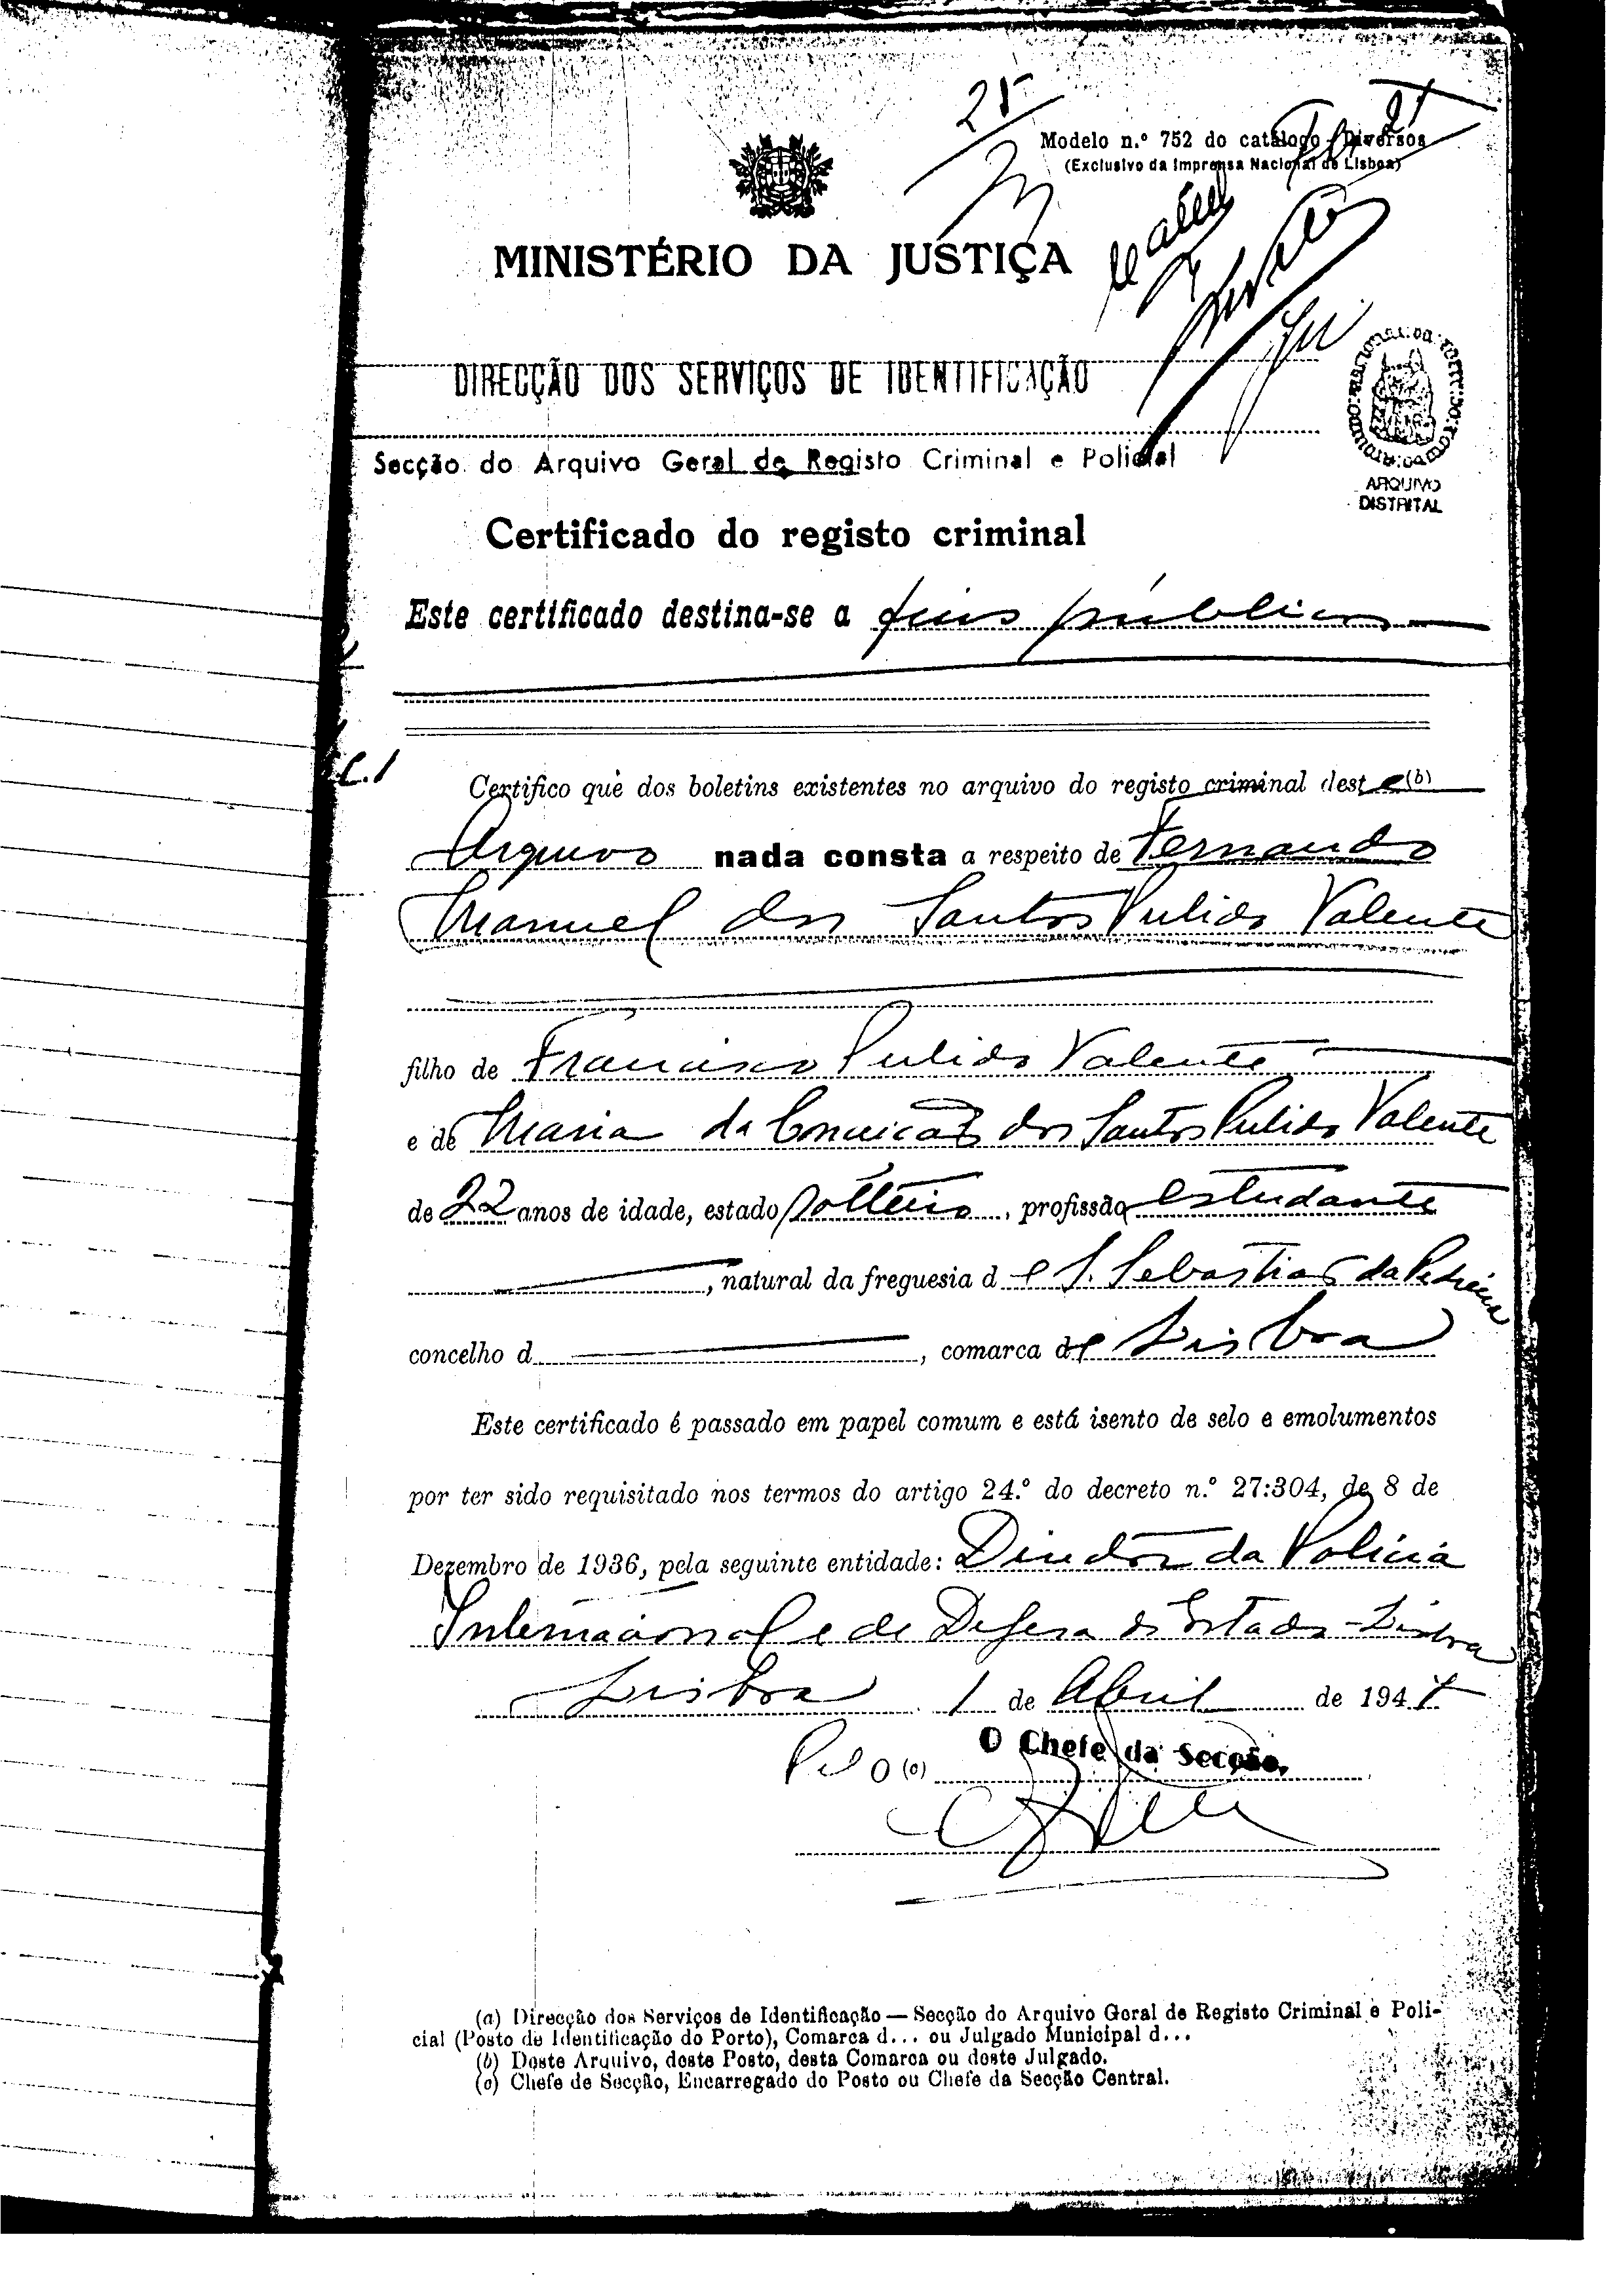 25
Modelo n.º 752 do catálogo - Diversos
(Exclusivo da Imprensa Nacional de Lisboa)
MINISTÉRIO DA JUSTIÇA
DIRECÇÃO DOS SERVIÇOS DE IDENTIFICAÇÃO
Secção do Arquivo Geral de Registo Criminal e Policial
ARQUIVO
DISTRITAL
Certificado do registo criminal
Este certificado destina-se a fins públicos
C.1
Certifico que dos boletins existentes no arquivo do registo criminal deste (b)
Arquivo nada consta a respeito de Fernando
Manuel dos Santos Pulido Valente
filho de Francisco Pulido Valente
e de Maria da Conceição dos Santos Pulido Valente
de 22 anos de idade, estado solteiro, profissão estudante
, natural da freguesia de S. Sebastião da Pedreira
concelho d , comarca de Lisboa
Este certificado é passado em papel comum e está isento de selo e emolumentos
por ter sido requisitado nos termos do artigo 24.º do decreto n.º 27:304, de 8 de
Dezembro de 1936, pela seguinte entidade: Director da Polícia
Internacional e de Defesa do Estado - Lisboa
Lisboa 1 de Abril de 194
Pel O (c) O Chefe da Secção,
(a) Direcção dos Serviços de Identificação — Secção do Arquivo Geral de Registo Criminal e Poli-
cial (Posto de Identificação do Porto), Comarca d... ou Julgado Municipal d...
(b) Deste Arquivo, deste Posto, desta Comarca ou deste Julgado.
(c) Chefe de Secção, Encarregado do Posto ou Chefe da Secção Central.